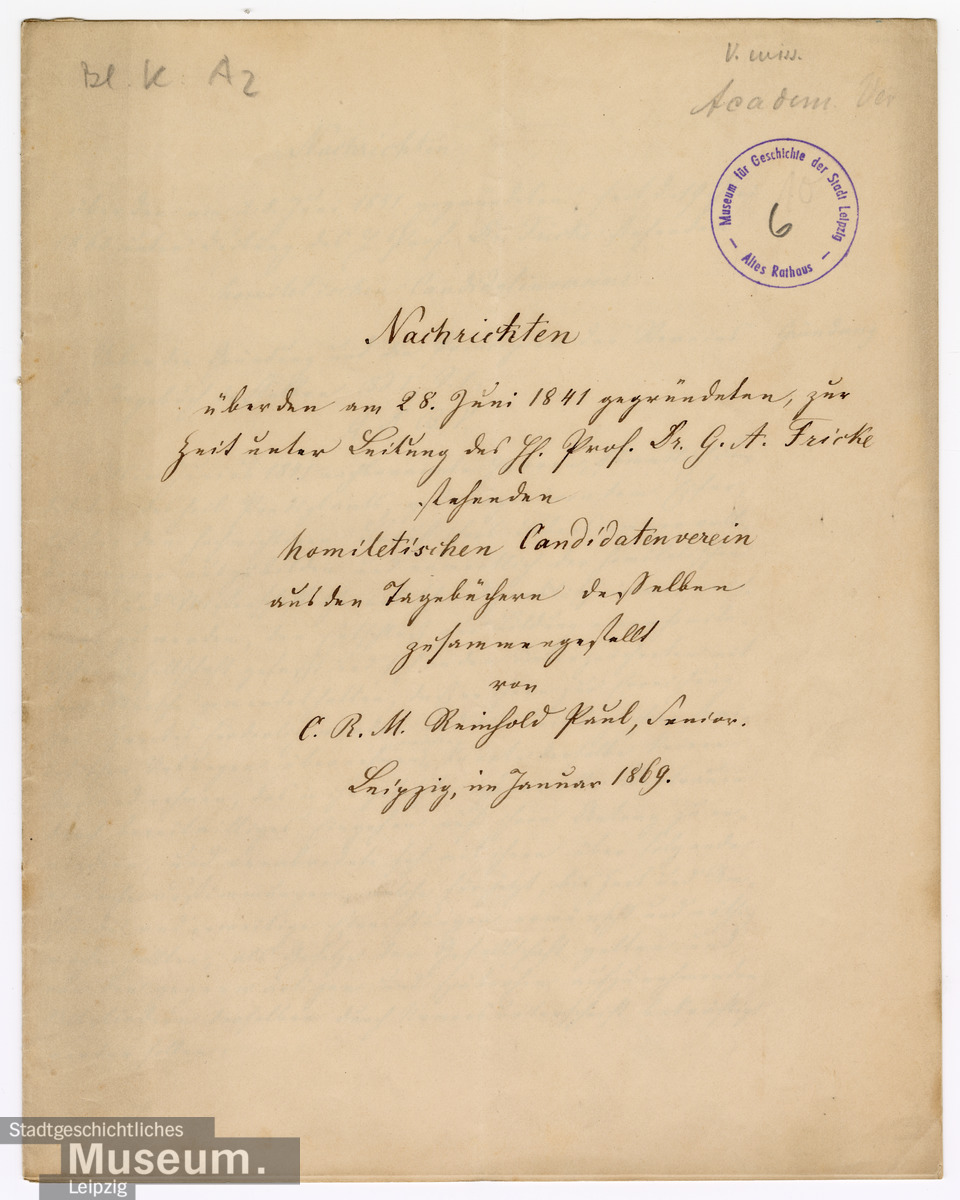 Bl. K. A2
V. miss.
Academ. Ver
Museum für Geschichte der Stadt Leipzig
6
— Altes Rathaus —
Nachrichten
über den am 28. Juni 1841 gegründeten, zur
Zeit unter Leitung des H. Prof. Dr. G. A. Fricke
stehenden
homiletischen Candidatenverein
aus den Tagebüchern desselben
zusammengestellt
von
C. R. M. Reinhold Paul, Senior.
Leipzig, im Januar 1869.
Stadtgeschichtliches
Museum.
Leipzig